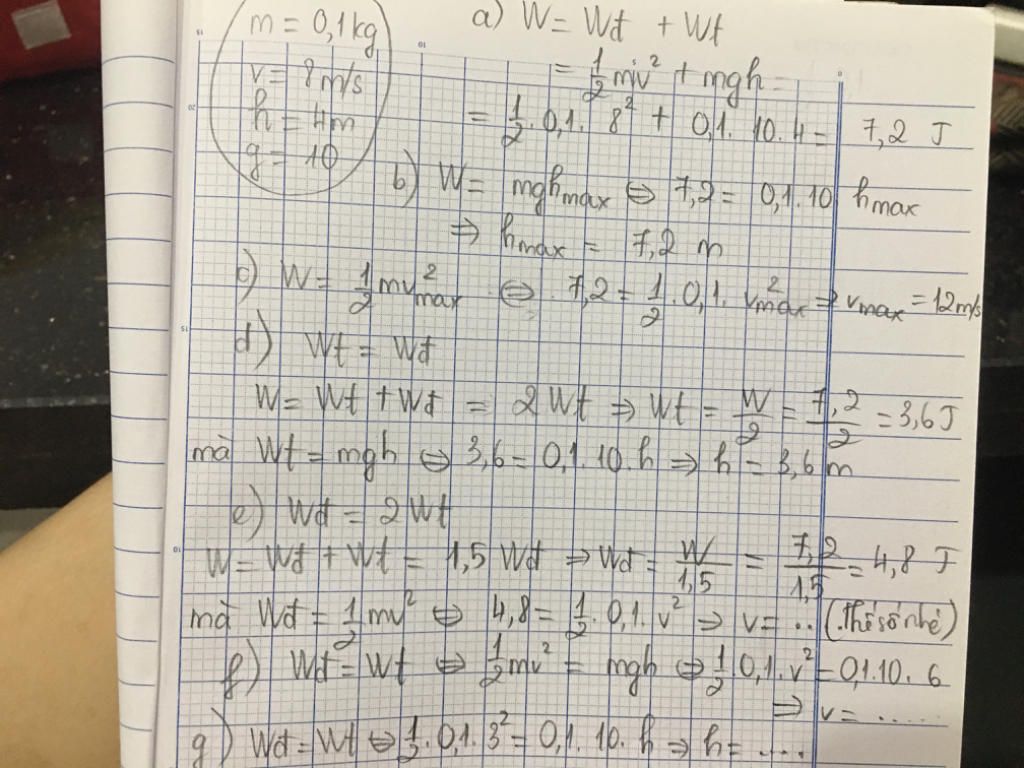 m = 0,1 kg
v = 8 m/s
h = 4m
g = 10
a) W = Wđ + Wt
= 1/2 mv² + mgh
= 1/2 . 0,1 . 8² + 0,1 . 10 . 4 = 7,2 J
b) W = mgh max ⇔ 7,2 = 0,1 . 10 h max
⇒ h max = 7,2 m
c) W = 1/2 mv² max ⇔ 7,2 = 1/2 . 0,1 . v² max ⇒ v max = 12 m/s
d) Wt = Wđ
W = Wt + Wđ = 2 Wt ⇒ Wt = W/2 = 7,2/2 = 3,6 J
mà Wt = mgh ⇔ 3,6 = 0,1 . 10 . h ⇒ h = 3,6 m
e) Wđ = 2 Wt
W = Wđ + Wt = 1,5 Wđ ⇒ Wđ = W/1,5 = 7,2/1,5 = 4,8 J
mà Wđ = 1/2 mv² ⇔ 4,8 = 1/2 . 0,1 . v² ⇒ v = .. (Thế số nhé)
f) Wđ = Wt ⇔ 1/2 mv² = mgh ⇔ 1/2 . 0,1 . v² = 0,1 . 10 . 6
⇒ v = .....
g) Wđ = Wt ⇔ 1/2 . 0,1 . 3² = 0,1 . 10 . h ⇒ h = ....